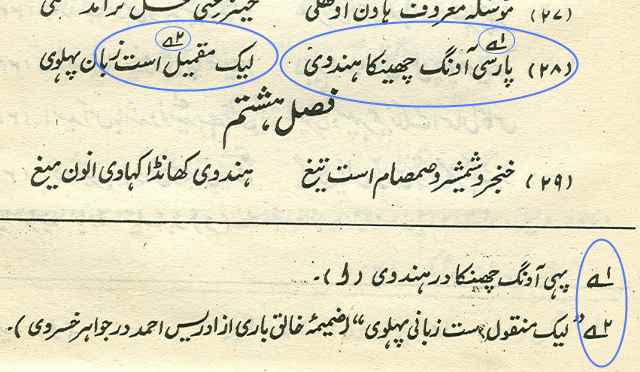 (۲۷) موسلہ معروف بادن اوکھلی
(۲۸) پارسی آدنگ چھینکا ہندوی لیک مقمیل است زبان پہلوی
فصل ہشتم
(۲۹) خنجر و شمشیر و صمصام است تیغ ہندوی کھانڈا کہاوی انون میغ
۱ے پہی آدنگ چھینکا در ہندوی (ا)۔
۲ے "لیک منقول ست زبانی پہلوی" (ضمیمۂ خالق باری از ادریس احمد در جواہر خسروی)۔